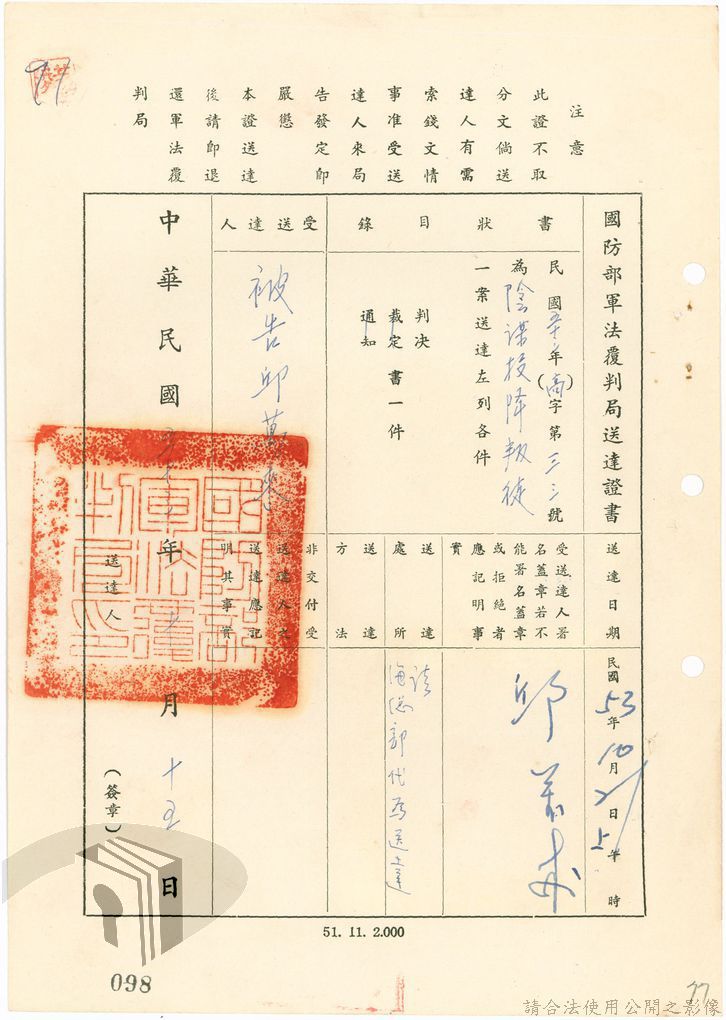 注意
此證不取
分文倘送
達人有需
索錢文情
事准受送
達人來局
告發定即
嚴懲
本證送達
後請即退
還軍法覆
判局
國防部軍法覆判局送達證書
書狀目錄
民國五十年(高)字第三三號
為陰謀投降叛徒
一案送達左列各件
判決
裁定書一件
通知
受送達人
被告邱萬來
送達日期
民國53年10月21日上午時
受送達人署
名蓋章若不
能署名蓋章
或拒絕者
應記明事
實
邱萬來
送達處所
請
海總部代為送達
送達方法
非交付受
送達人之
送達應記
明其事實
中華民國年月十五日
送達人
(簽章)
國防部軍法覆判局印
51. 11. 2.000
098
77
請合法使用公開之影像